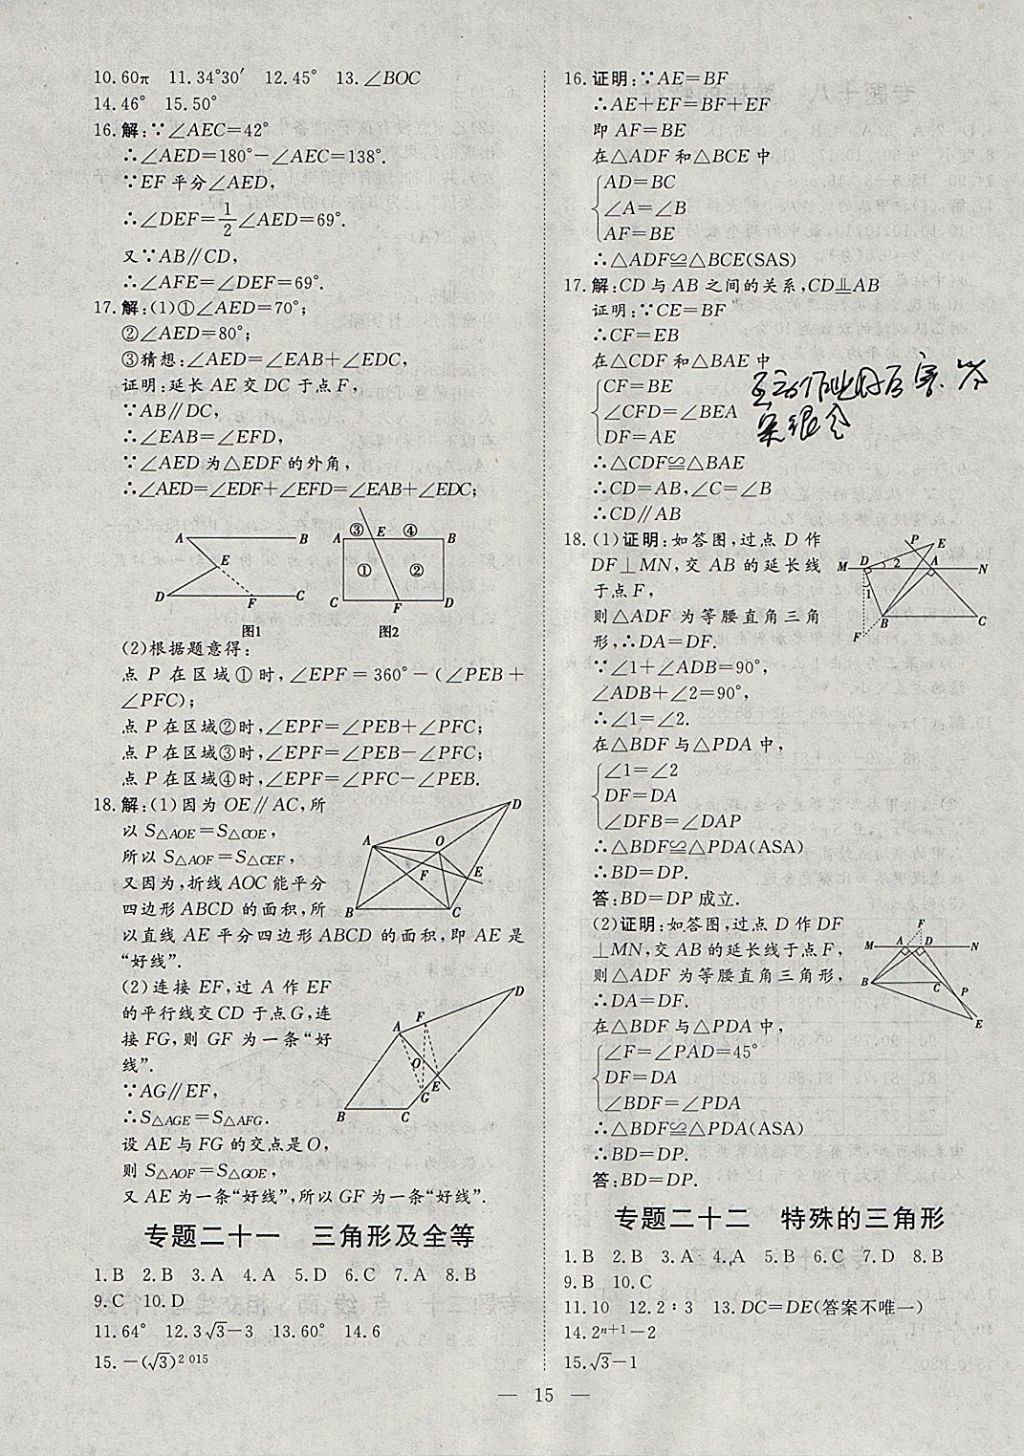 10.60π　11.34°30′　12.45°　13.∠BOC
14.46°　15.50°
16.解:∵∠AEC=42°
∴∠AED=180°-∠AEC=138°.
∵EF平分∠AED,
∴∠DEF=1/2∠AED=69°.
又∵AB∥CD,
∴∠AFE=∠DEF=69°.
17.解:(1)①∠AED=70°;
②∠AED=80°;
③猜想:∠AED=∠EAB+∠EDC,
证明:延长AE交DC于点F,
∵AB∥DC,
∴∠EAB=∠EFD,
∵∠AED为△EDF的外角,
∴∠AED=∠EDF+∠EFD=∠EAB+∠EDC;
A B E D F C
A ③ E ④ B ① ② C F D
图1　图2
(2)根据题意得:
点P在区域①时,∠EPF=360°-(∠PEB+
∠PFC);
点P在区域②时,∠EPF=∠PEB+∠PFC;
点P在区域③时,∠EPF=∠PEB-∠PFC;
点P在区域④时,∠EPF=∠PFC-∠PEB.
18.解:(1)因为OE∥AC,所
以S△AOE=S△COE,
所以S△AOF=S△CEF,
又因为,折线AOC能平分
四边形ABCD的面积,所
以直线AE平分四边形ABCD的面积,即AE是
“好线”.
D A O F E B C
(2)连接EF,过A作EF
的平行线交CD于点G,连
接FG,则GF为一条“好
线”.
∵AG∥EF,
∴S△AGE=S△AFG.
设AE与FG的交点是O,
则S△AOF=S△GOE,
又AE为一条“好线”,所以GF为一条“好线”.
D F A O E G B C
专题二十一　三角形及全等
1.B　2.B　3.A　4.A　5.D　6.C　7.A　8.B
9.C　10.D
11.64°　12.3√3-3　13.60°　14.6
15.-(√3)^2 015
16.证明:∵AE=BF
∴AE+EF=BF+EF
即AF=BE
在△ADF和△BCE中
AD=BC
∠A=∠B
AF=BE
∴△ADF≌△BCE(SAS)
17.解:CD与AB之间的关系,CD⊥AB
证明:∵CE=BF
∴CF=EB
在△CDF和△BAE中
CF=BE
∠CFD=∠BEA
DF=AE
∴△CDF≌△BAE
∴CD=AB,∠C=∠B
∴CD∥AB
18.(1)证明:如答图,过点D作
DF⊥MN,交AB的延长线
于点F,
则△ADF为等腰直角三角
形,∴DA=DF.
∵∠1+∠ADB=90°,
∠ADB+∠2=90°,
∴∠1=∠2.
在△BDF与△PDA中,
∠1=∠2
DF=DA
∠DFB=∠DAP
∴△BDF≌△PDA(ASA)
∴BD=DP.
答:BD=DP成立.
P E M D 2 A N 1 B C F
(2)证明:如答图,过点D作DF
⊥MN,交AB的延长线于点F,
则△ADF为等腰直角三角形,
∴DA=DF.
在△BDF与△PDA中,
∠F=∠PAD=45°
DF=DA
∠BDF=∠PDA
∴△BDF≌△PDA(ASA)
∴BD=DP.
答:BD=DP.
F M A D N B C P E
专题二十二　特殊的三角形
1.B　2.B　3.A　4.A　5.B　6.C　7.D　8.B
9.B　10.C
11.10　12.2∶3　13.DC=DE(答案不唯一)
14.2^n+1-2
15.√3-1
— 15 —